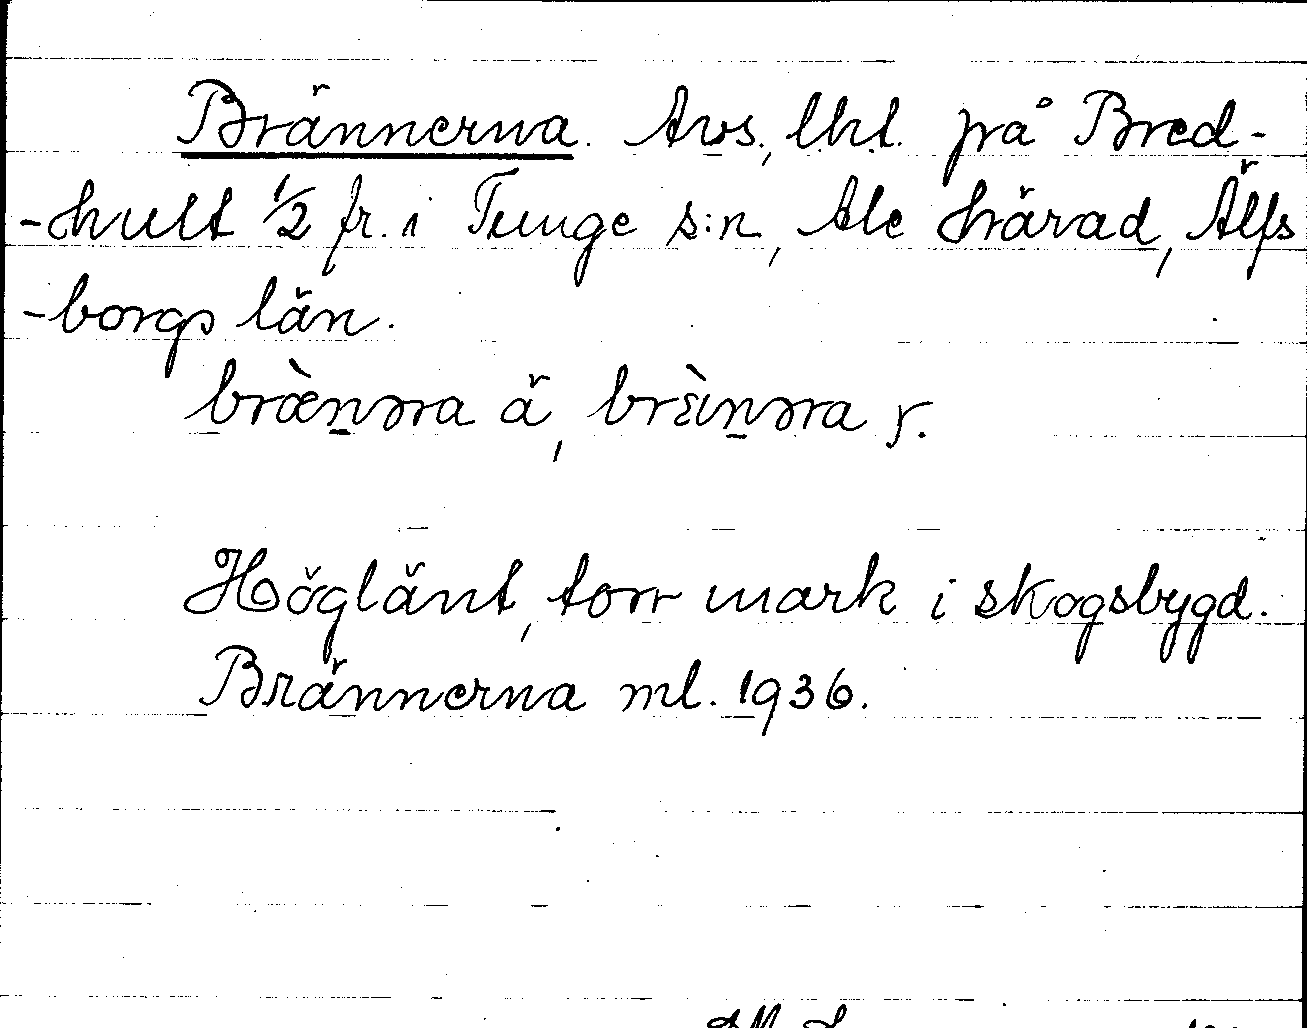 Brännerna. Avs., lht. på Bred-
-hult 1/2 fr. i Tunge s:n, Ale härad, Älfs
-borgs län.
bræ̀n̠əra ä, brɛ̀in̠əra y.
Höglänt, torr mark i skogsbygd.
Brännerna ml. 1936.